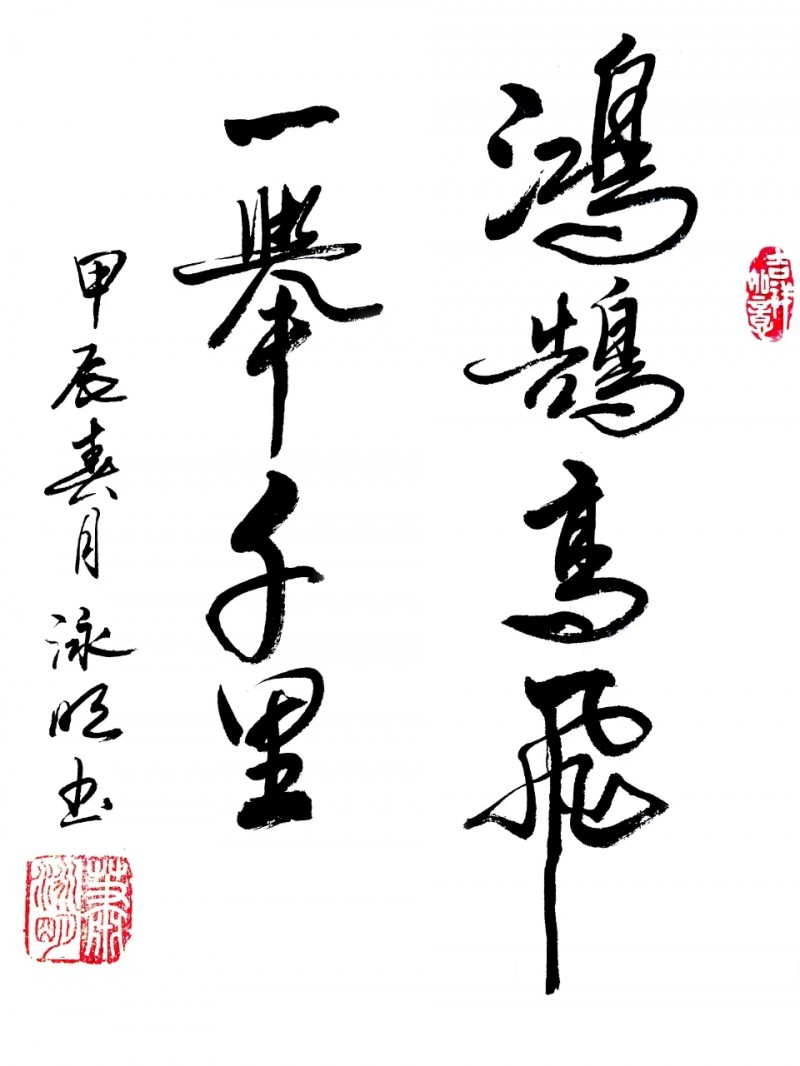 鴻鵠高飛
一舉千里
甲辰春月 泳明书
吉祥如意
泳明